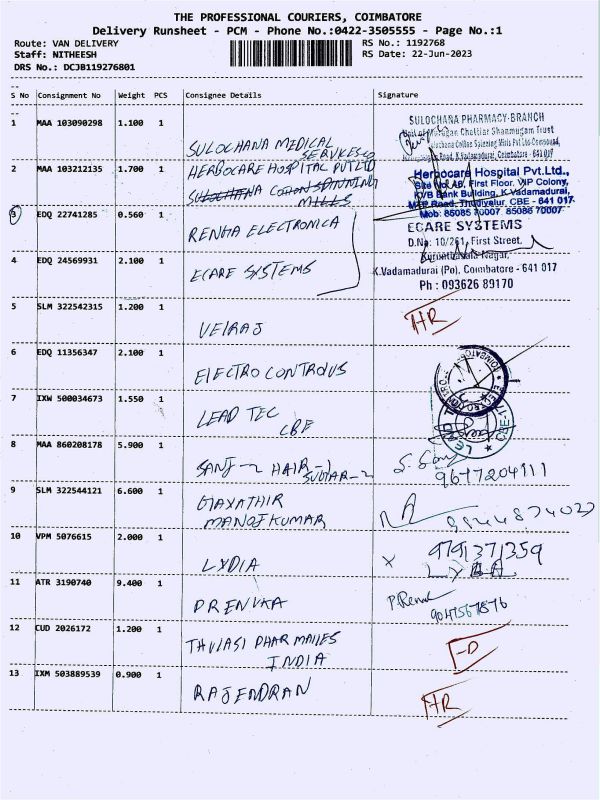 THE PROFESSIONAL COURIERS, COIMBATORE
Delivery Runsheet - PCM - Phone No.:0422-3505555 - Page No.:1
Route: VAN DELIVERY RS No.: 1192768
Staff: NITHEESH RS Date: 22-Jun-2023
DRS No.: DCJB119276801
S No Consignment No Weight PCS Consignee Details Signature
1 MAA 103090298 1.100 1
SULOCHANA MEDICAL
SERVICESCO
SULOCHANA PHARMACY-BRANCH
Unit of Murugan Chettiar Shanmugam Trust
Sulochana Cotton Spinning Mills Pvt Ltd-Compound,
Road, K.Vadamadurai, Coimbatore - 641 017
2 MAA 103212135 1.700 1
HERBOCARE HOSPITAL PVTLTD
SULOCHANA COTTON SPINNING
MILLS
Herbocare Hospital Pvt.Ltd.,
Site No.46, First Floor, VIP Colony,
KVB Bank Building, K.Vadamadurai,
MTP Road, Thudiyalur, CBE - 641 017.
Mob: 85085 70007, 85086 70007
3 EDQ 22741285 0.560 1
RENHA ELECTRONICA
ECARE SYSTEMS
D.No: 10/261, First Street,
Nagar,
K.Vadamadurai (Po), Coimbatore - 641 017
Ph : 093626 89170
4 EDQ 24569931 2.100 1
ECARE SYSTEMS
5 SLM 322542315 1.200 1
VELRAJ
HR
6 EDQ 11356347 2.100 1
ELECTRO CONTROLS
7 IXW 500034673 1.550 1
LEAD TEC
CBE
LEAD
CBE-17
8 MAA 860208178 5.900 1
SANJ-2 HAIR-1
SUGTAR-2
9677204111
9 SLM 322544121 6.600 1
GAYATHIR
MANOJKUMAR
10 VPM 5076615 2.000 1
LYDIA
X 9791371359
11 ATR 3190740 9.400 1
PRENUKA
P.Renu
12 CUD 2026172 1.200 1
THULASI PHARMAIES
INDIA
13 IXM 503889539 0.900 1
RAJENDRAN
HR